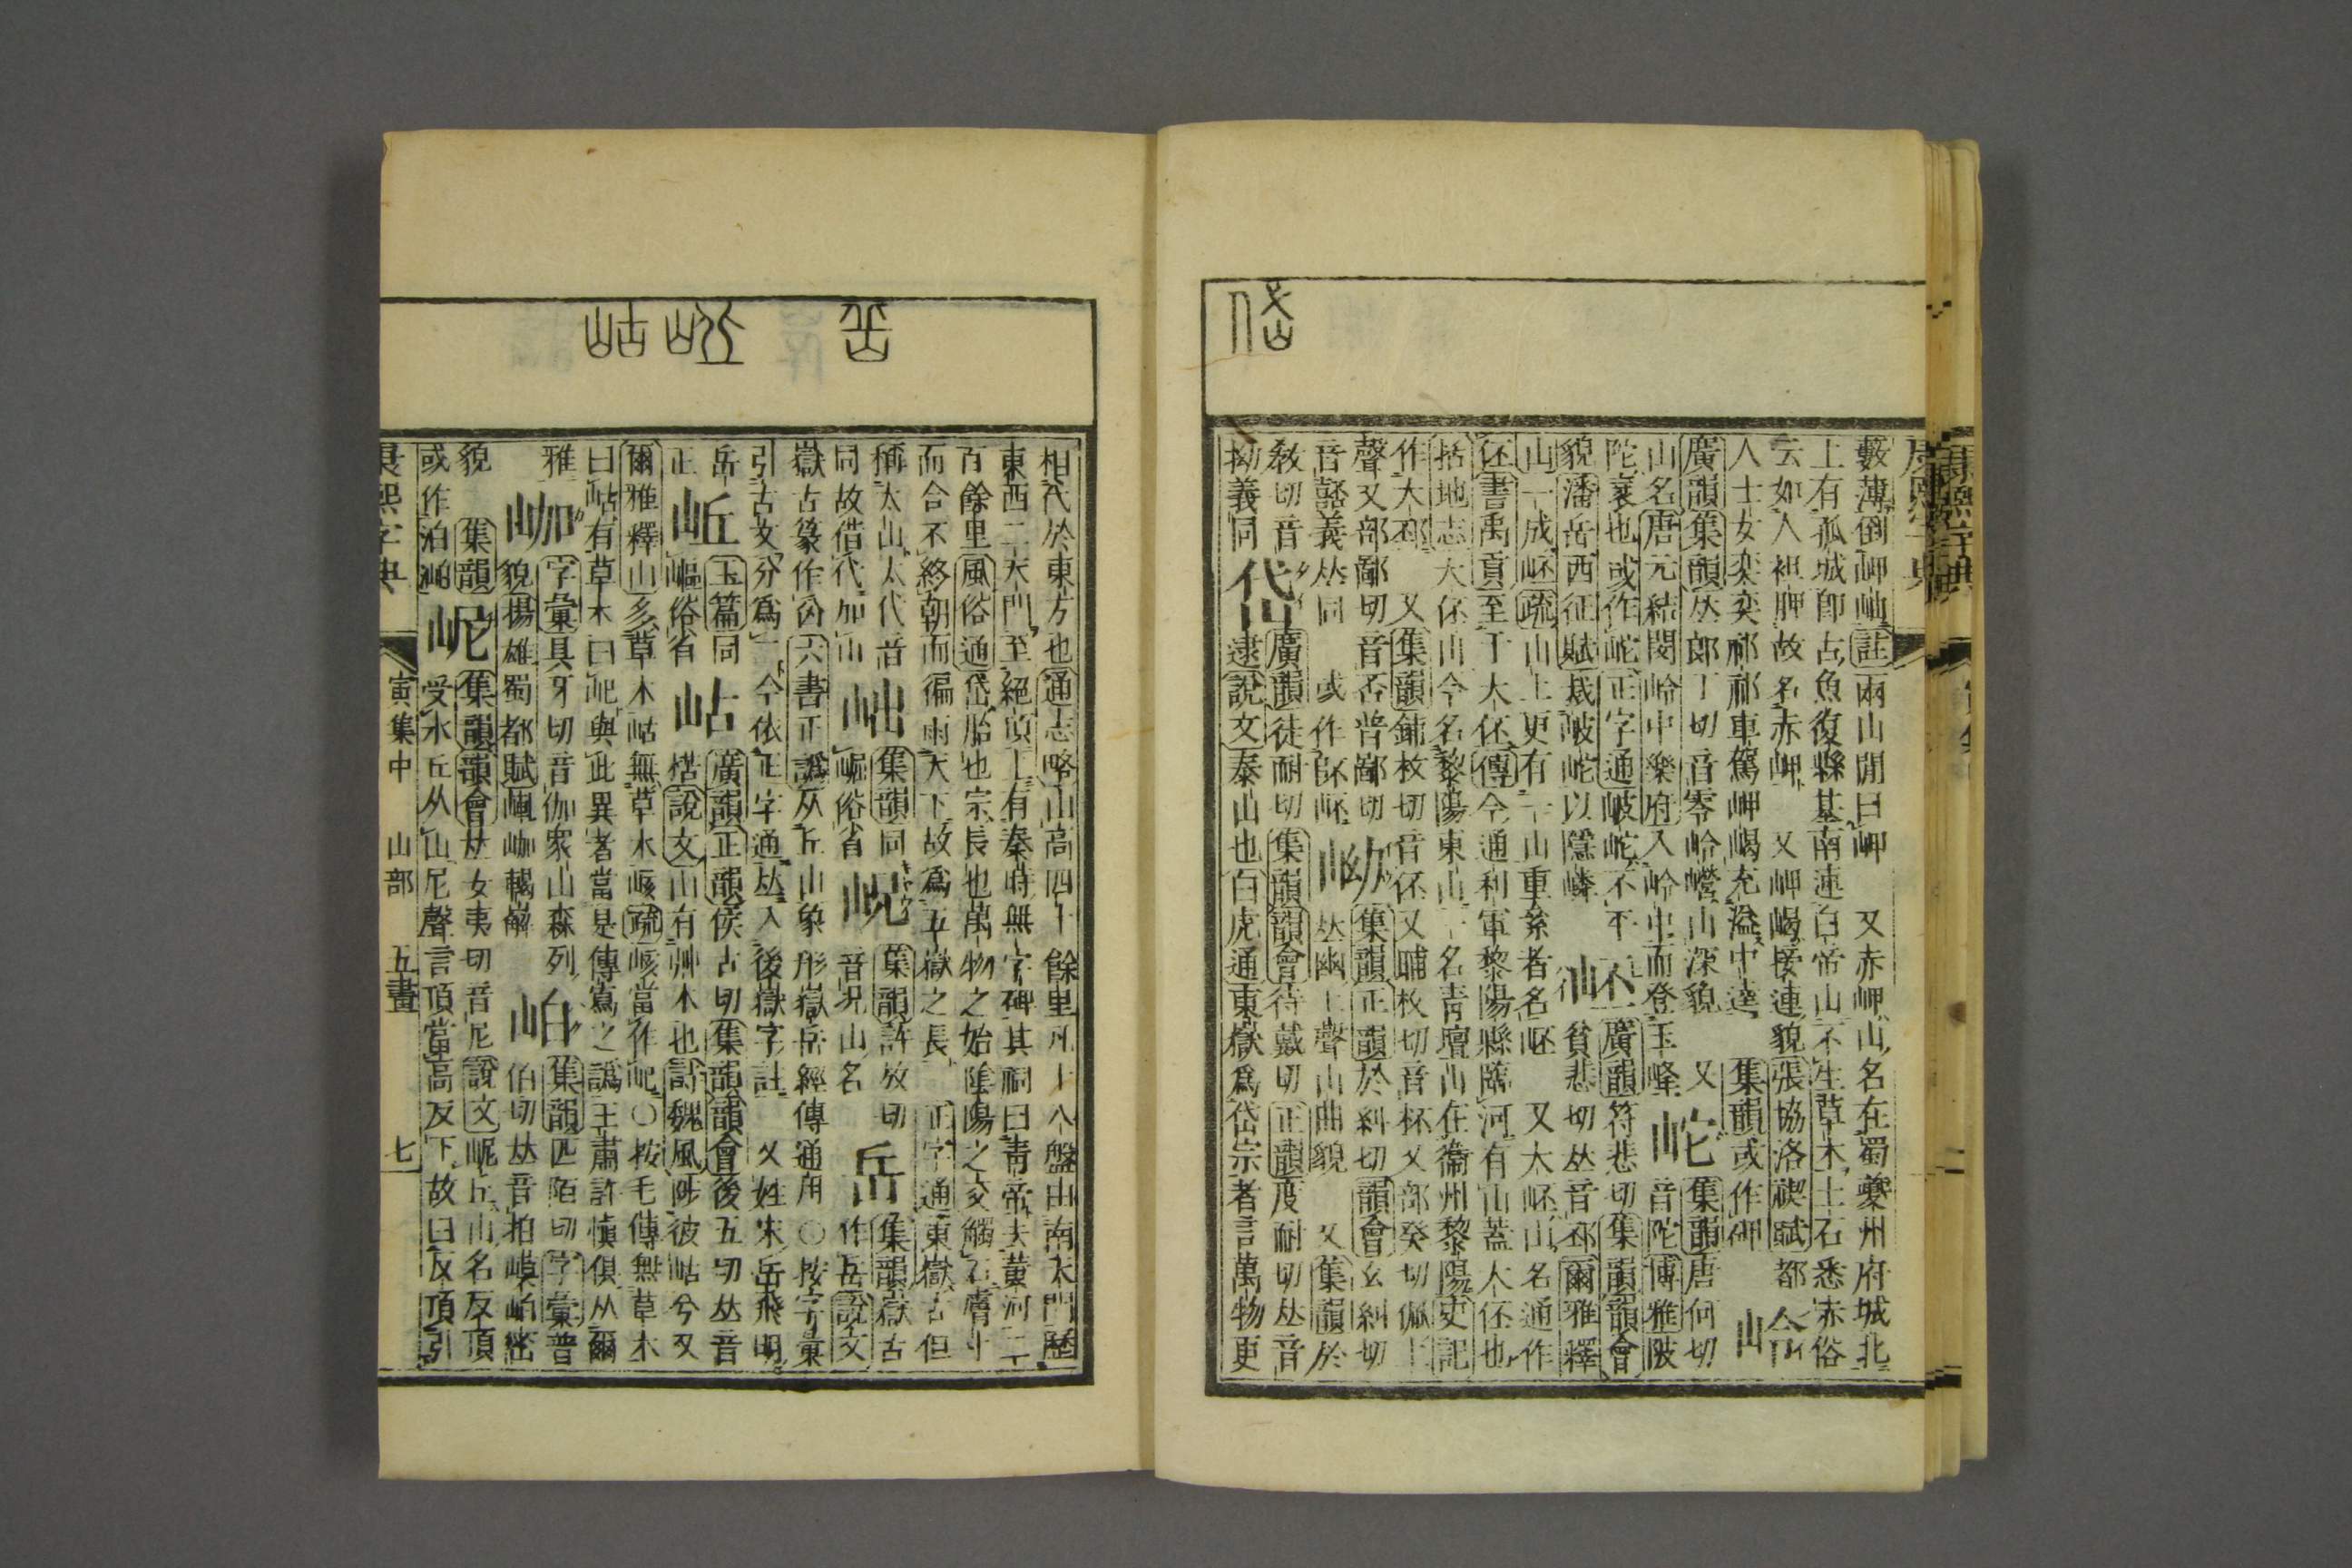 康熙字典
藪薄倒岬岫註兩山閒曰岬 又赤岬山名在蜀夔州府城北
上有孤城卽古魚復縣基南連白帝山不生草木土石悉赤俗
云如人袒胛故名赤岬 又岬嵑接連貌張協洛禊賦都
人士女奕奕祁祁車駕岬嵑充溢中逵 集韻或作砷 岭
廣韻集韻𠀤郞丁切音零岭巆山深貌 又
山名唐元結閔岭中樂府入岭中而登玉峰 岮 集韻唐何切音陀博雅陂
陀衺也或作岮正字通岥岮不平
貌潘岳西征賦裁岥岮以隱嶙 岯 廣韻符悲切集韻韻會貧悲切𠀤音邳爾雅釋
山一成岯疏山上更有一山重絫者名岯 又大岯山名通作
伾書禹貢至于大伾傳今通利軍黎陽縣臨河有山蓋大伾也
括地志大伾山今名黎陽東山一名靑壇山在衞州黎陽史記
作大邳 又集韻鋪枚切音伾又晡枚切音杯又部癸切㑂上
聲又部鄙切音否普鄙切
音嚭義𠀤同 或作𨸝岯 岰 集韻正韻於糾切韻會幺糾切𠀤幽上聲山曲貌 又集韻於
敎切音
拗義同 岱 廣韻徒耐切集韻韻會待戴切正韻度耐切𠀤音逮說文泰山也白虎通東嶽爲岱宗者言萬物更
相代於東方也通志略山高四十餘里凡十八盤由南太門歷
東西二大門至絕頂上有秦時無字碑其祠曰靑帝夫黃河三
百餘里風俗通岱胎也宗長也萬物之始陰陽之交觸石膚寸
而合不終朝而徧雨天下故爲五嶽之長 正字通東嶽古但
稱太山太代音
同故借代加山 岰 集韻同崛俗省 岲 集韻許放切音況山名 岳 集韻嶽古作岳說文
嶽古篆作𡴭六書正譌从丘山象形嶽岳經傳通用〇按字彙
引古文分爲二今依正字通𠀤入後嶽字註 又姓宋岳飛明
岳
正 岴 玉篇同嶇俗省 岵 廣韻正韻侯古切集韻韻會後五切𠀤音楛說文山有艸木也詩魏風陟彼岵兮又
爾雅釋山多草木岵無草木峐疏峐當作屺〇按毛傳無草木
曰岵有草木曰屺與此異者當是傳寫之譌王肅許愼俱从爾
雅 㚙 字彙具牙切音伽家山森列
貌揚雄蜀都賦㟅㚙輵嶰 岶 集韻匹陌切字彙普伯切𠀤音拍㠔岶密
貌 集韻
或作洦岫 岮 集韻韻會𠀤女夷切音尼說文岮丘山名反頂受水丘从山尼聲言頂當高反下故曰反頂引
康熙字典 寅集中 山部 五畫 七